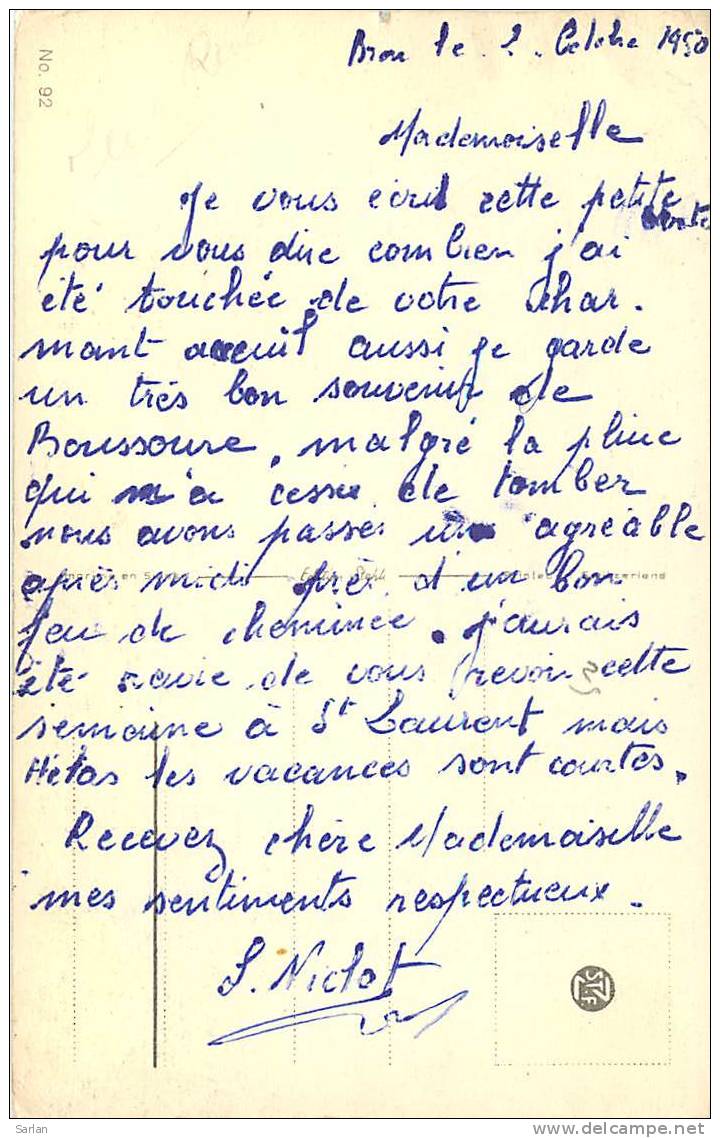 No. 92
Bron le 2 Octobre 1950
Mademoiselle
Je vous écris cette petite
carte
pour vous dire combien j'ai
été touchée de votre char-
mant acceuil aussi je garde
un très bon souvenir de
Boussoure, malgré la pluie
qui n'a cessé de tomber
nous avons passés un agréable
après midi près d'un bon
feu de cheminée. j'aurais
été ravie de vous revoir cette
semaine à St Laurent mais
Hélas les vacances sont courtes.
Recevez chère Mademoiselle
mes sentiments respectueux.
S. Niclot
Sarlan
www.delcampe.net